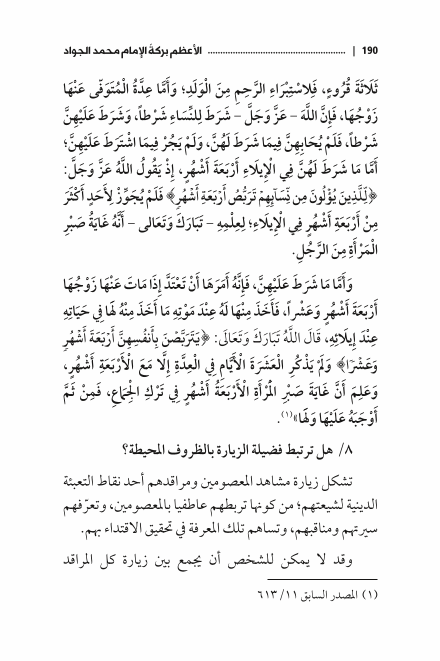 190 | ........................................ الأعظم بركةً الإمام محمد الجواد
ثَلَاثَةَ قُرُوءٍ، فَلِاسْتِبْرَاءِ الرَّحِمِ مِنَ الْوَلَدِ؛ وَأَمَّا عِدَّةُ الْمُتَوَفّى عَنْهَا
زَوْجُهَا، فَإِنَّ اللّهَ – عَزَّ وَجَلَّ – شَرَطَ لِلنِّسَاءِ شَرْطاً، وَشَرَطَ عَلَيْهِنَّ
شَرْطاً، فَلَمْ يُحَابِهِنَّ فِيمَا شَرَطَ لَهُنَّ، وَلَمْ يَجُرْ فِيمَا اشْتَرَطَ عَلَيْهِنَّ؛
أَمَّا مَا شَرَطَ لَهُنَّ فِي الْإِيلَاءِ أَرْبَعَةَ أَشْهُرٍ، إِذْ يَقُولُ اللّهُ عَزَّ وَجَلَّ:
﴿لِّلَّذِينَ يُؤْلُونَ مِن نِّسَآئِهِمْ تَرَبُّصُ أَرْبَعَةِ أَشْهُرٍ﴾ فَلَمْ يُجَوِّزْ لِأَحَدٍ أَكْثَرَ
مِنْ أَرْبَعَةِ أَشْهُرٍ فِي الْإِيلَاءِ؛ لِعِلْمِهِ – تَبَارَكَ وَتَعَالى – أَنَّهُ غَايَةُ صَبْرِ
الْمَرْأَةِ مِنَ الرَّجُلِ.
وَأَمَّا مَا شَرَطَ عَلَيْهِنَّ، فَإِنَّهُ أَمَرَهَا أَنْ تَعْتَدَّ إِذَا مَاتَ عَنْهَا زَوْجُهَا
أَرْبَعَةَ أَشْهُرٍ وَعَشْراً، فَأَخَذَ مِنْهَا لَهُ عِنْدَ مَوْتِهِ مَا أَخَذَ مِنْهُ لَهَا فِي حَيَاتِهِ
عِنْدَ إِيلَائِهِ، قَالَ اللّهُ تَبَارَكَ وَتَعَالَى: ﴿يَتَرَبَّصْنَ بِأَنفُسِهِنَّ أَرْبَعَةَ أَشْهُرٍ
وَعَشْرًا﴾ وَلَمْ يَذْكُرِ الْعَشَرَةَ الْأَيَّامِ فِي الْعِدَّةِ إِلَّا مَعَ الْأَرْبَعَةِ أَشْهُرٍ،
وَعَلِمَ أَنَّ غَايَةَ صَبْرِ الْمَرْأَةِ الْأَرْبَعَةُ أَشْهُرٍ فِي تَرْكِ الْجِمَاعِ، فَمِنْ ثَمَّ
أَوْجَبَهُ عَلَيْهَا وَلَهَا»(١).
٨/ هل ترتبط فضيلة الزيارة بالظروف المحيطة؟
تشكل زيارة مشاهد المعصومين ومراقدهم أحد نقاط التعبئة
الدينية لشيعتهم؛ من كونها تربطهم عاطفيا بالمعصومين، وتعرّفهم
سيرتهم ومناقبهم، وتساهم تلك المعرفة في تحقيق الاقتداء بهم.
وقد لا يمكن للشخص أن يجمع بين زيارة كل المراقد
(١) المصدر السابق ١١/ ٦١٣